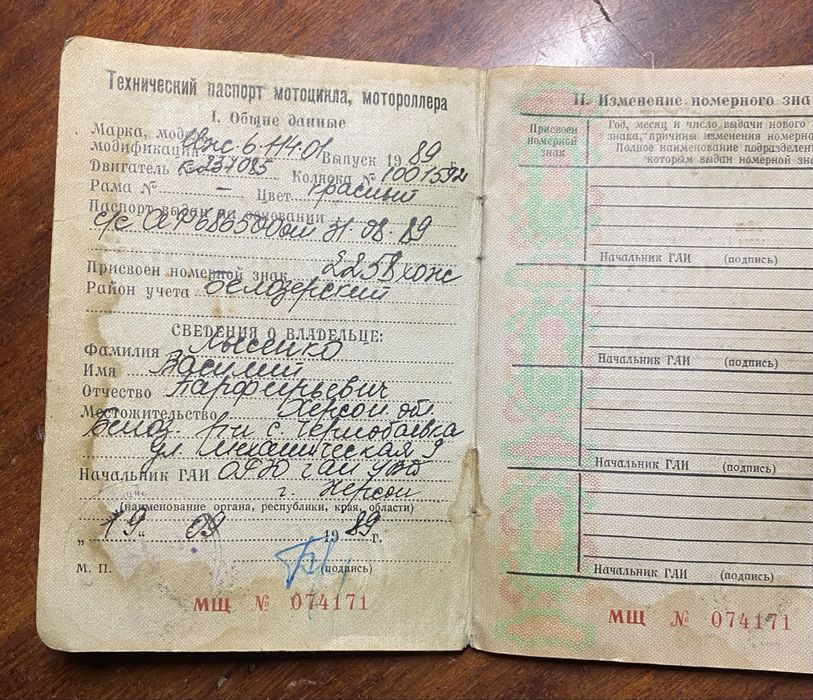 Технический паспорт мотоцикла, мотороллера
I. Общие данные
Марка, моде
модификаци ИЖ 6.114.01 Выпуск 1989 г.
Двигатель № 237085 Коляска № 1001592
Рама № – Цвет красный
Паспорт выдан на основании
с/с 686500 от 31 08 89
Присвоен номерной знак 2258 хонс
Район учета Белозерский
СВЕДЕНИЯ О ВЛАДЕЛЬЦЕ:
Фамилия Лысенко
Имя Василий
Отчество Парфирьевич
Местожительство Херсон обл
Белоз р-н с. Чернобаевка
ул 9
Начальник ГАИ ГАИ УВД
г. Херсон
(наименование органа, республики, края, области)
„19“ 09 1989 г.
М. П. (подпись)
МЩ № 074171
II. Изменение номерного зна
Присвоен
номерной
знак
Год, месяц и число выдачи нового
знака, причины изменения номерно
Полное наименование подразделен
которым выдан номерной зна
Начальник ГАИ (подпись)
Начальник ГАИ (подпись)
Начальник ГАИ (подпись)
Начальник ГАИ (подпись)
МЩ № 074171